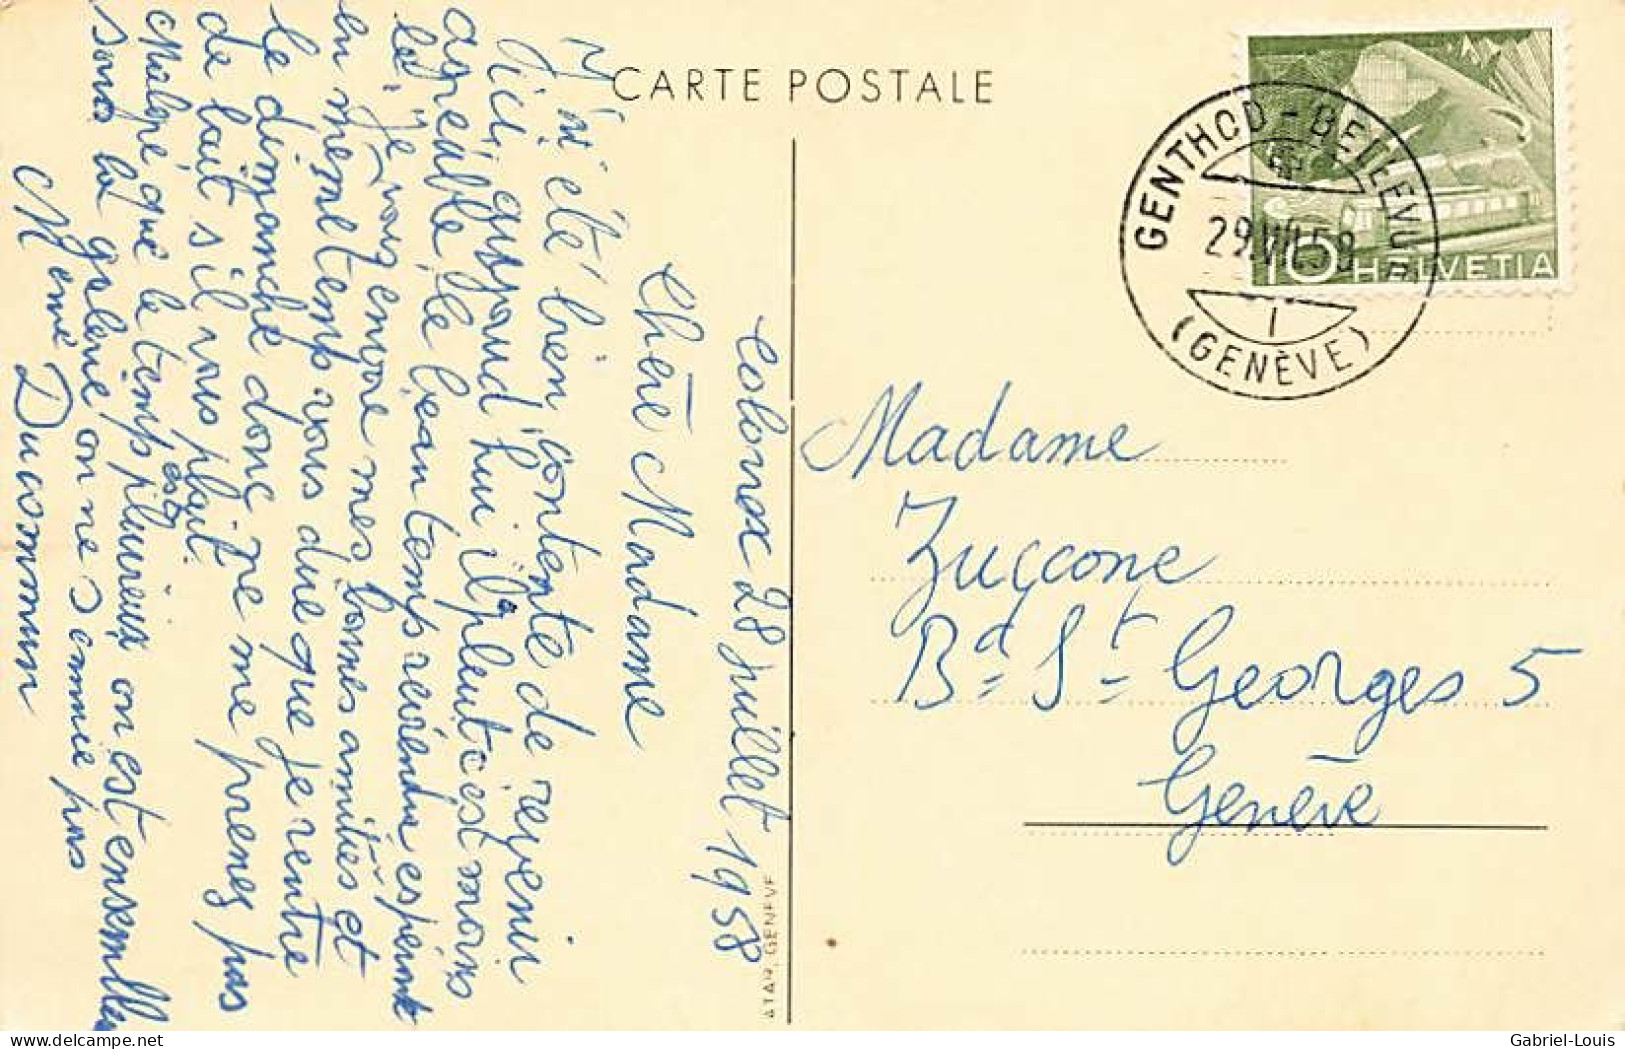 CARTE POSTALE
HELVETIA
10
GENTHOD-BELLEVUE
29.VII.58
1
(GENÈVE)
28 juillet 1958
Chère Madame
J'ai été bien contente de revenir
ici aujourd'hui il pleut c'est moins
agréable le beau temps espérant
là, je vous envore mes bonnes amitiés et
en mesme temps vous dire que je rentre
le dimanche donc ne me prenez pas
de lait s'il vous plait.
Malgré que le temps est pluvieux on est ensemble
sons la on ne s'ennuie pas
Memé Ducommun
Madame
Zuccone
Bd St Georges 5
Genève
ATAR, GENÈVE
delcampe.net
Gabriel-Louis